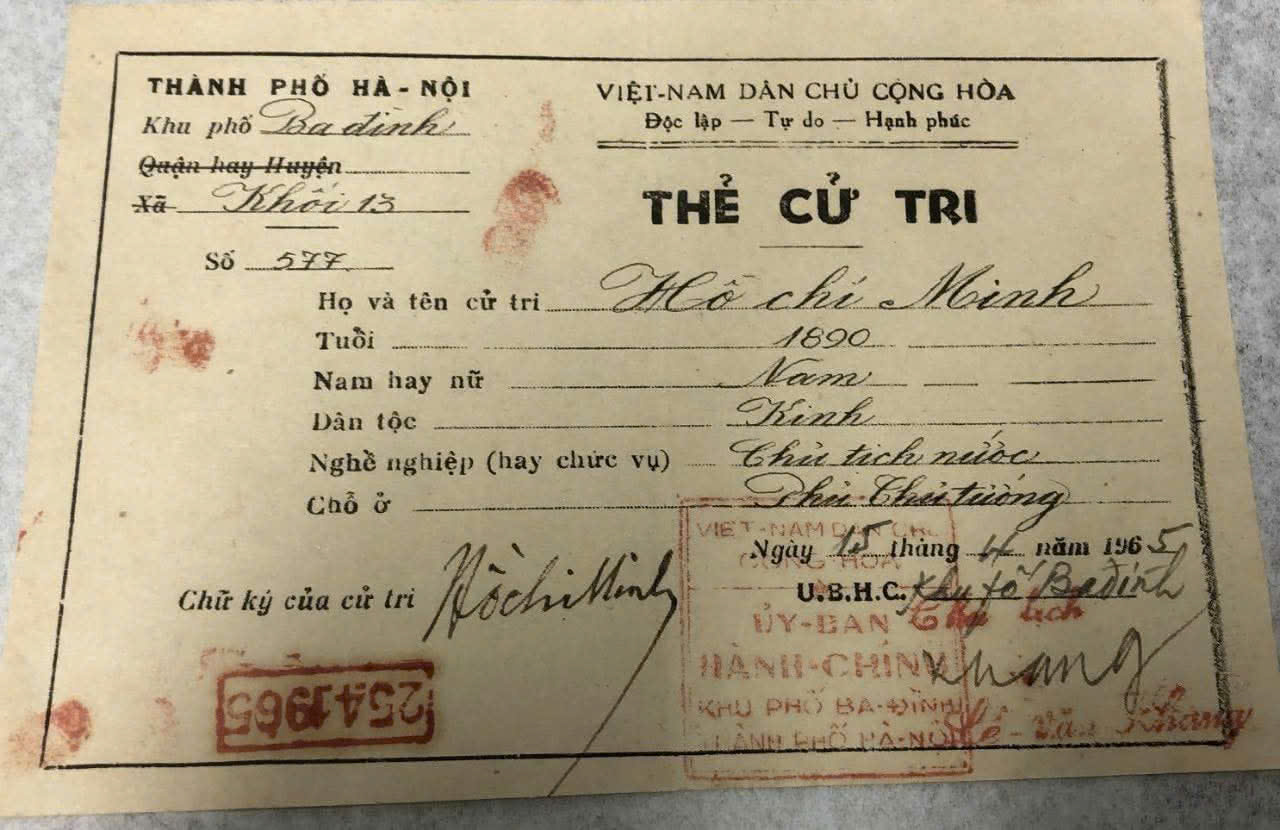 THÀNH PHỐ HÀ-NỘI
Khu phố Ba đình
Quận hay Huyện
Xã Khối 13
Số 577
VIỆT-NAM DÂN CHỦ CỘNG HÒA
Độc lập — Tự do — Hạnh phúc
THẺ CỬ TRI
Họ và tên cử tri Hồ chí Minh
Tuổi 1890
Nam hay nữ Nam
Dân tộc Kinh
Nghề nghiệp (hay chức vụ) Chủ tịch nước
Chỗ ở Phủ Thủ tướng
Ngày 15 tháng 4 năm 1965
U.B.H.C. Khu fố Ba đình
Chữ ký của cử tri Hồ chí Minh
VIỆT-NAM DÂN CHỦ
CỘNG HÒA
ỦY-BAN
HÀNH-CHÍNH
KHU PHỐ BA-ĐÌNH
THÀNH PHỐ HÀ-NỘI
254 1965